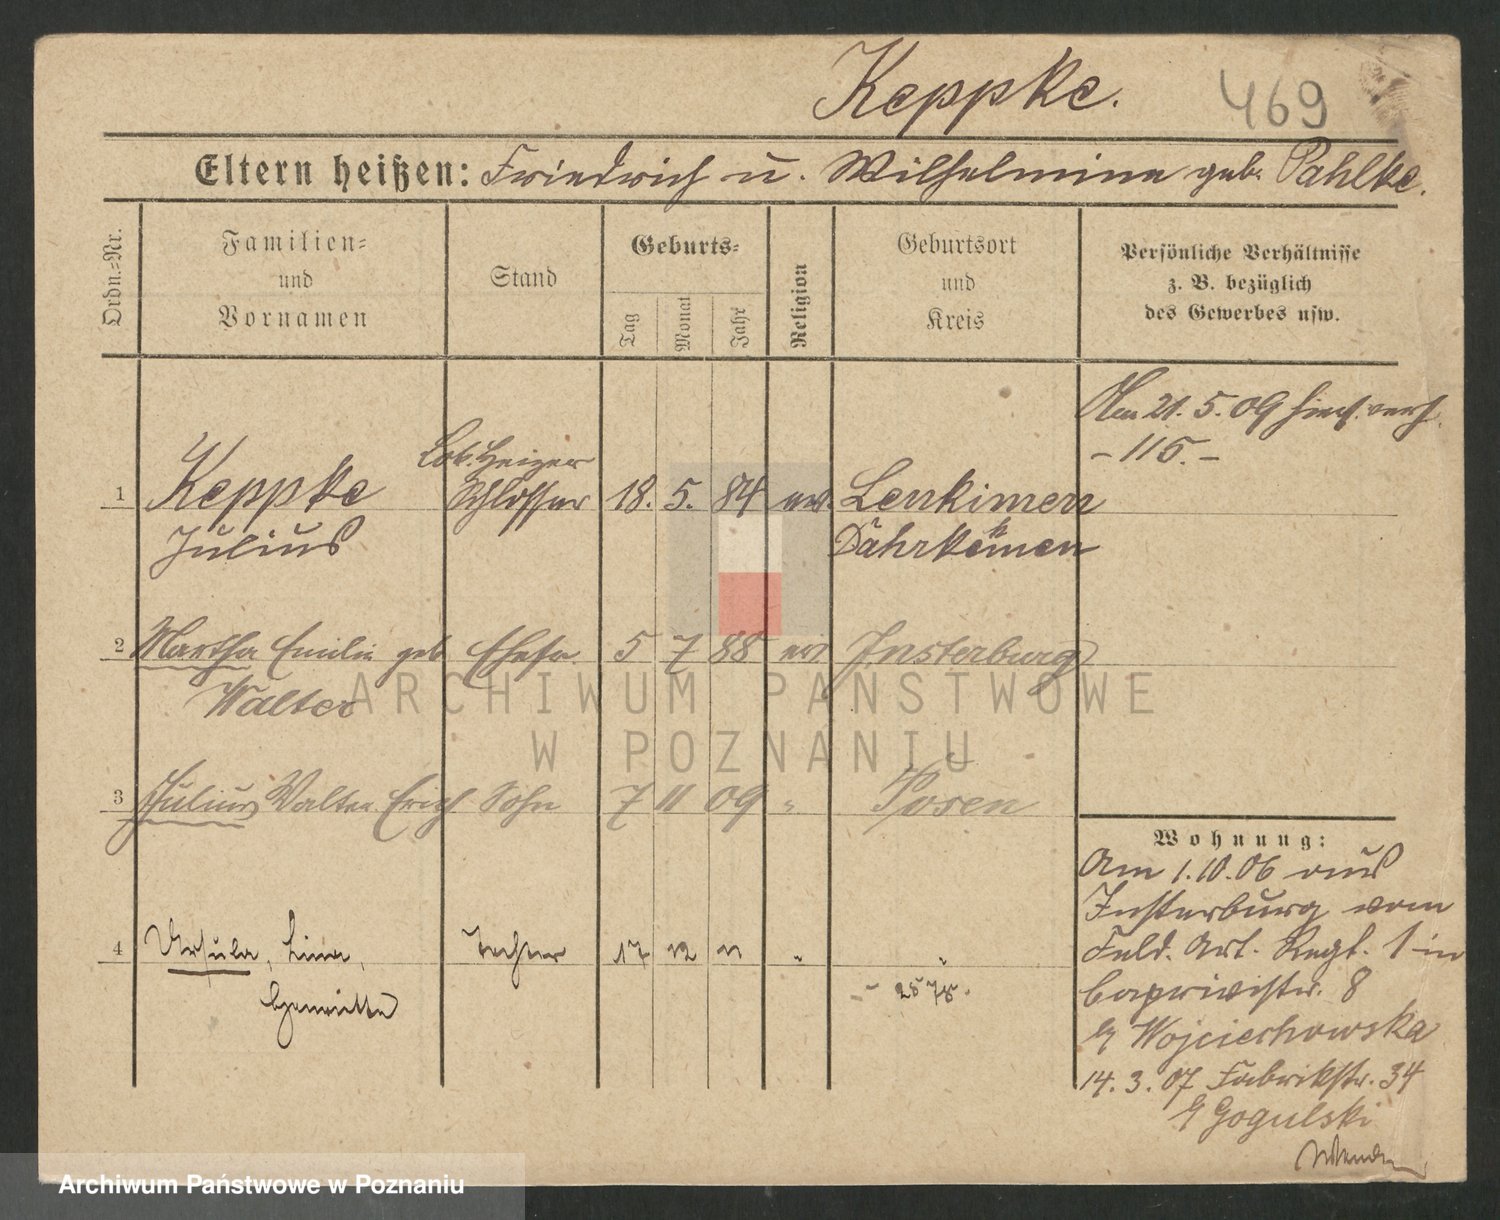 Keppke. 469
Eltern heißen: Friedrich u. Wilhelmine geb. Pahlke.
Ordn.-Nr.
Familien-
und
Vornamen
Stand
Geburts-
Tag
Monat
Jahr
Religion
Geburtsort
und
Kreis
Persönliche Verhältnisse
z. B. bezüglich
des Gewerbes usw.
Am 21. 5. 09 hies. verh.
- 115. -
Lok. Heizer
1 Keppke Schlosser 18. 5. 84 ev. Lenkimen
Julius
2 Martha Emilie geb Ehefr. 5 7 88 ev Insterburg
Walter
3 Julius Walter Erich Sohn 7 11 09 " Posen
4 Ursula, Lina, Tochter 17 12 11 " "
Henriette
Wohnung:
Am 1.10.06 aus
Insterburg vom
Feld. Art. Regt. 1 in
Caprivistr. 8
b/ Wojciechowska
14. 3. 07 Fabrikstr. 34
b/ Gogulski
Wenden
ARCHIWUM PAŃSTWOWE
W POZNANIU
Archiwum Państwowe w Poznaniu